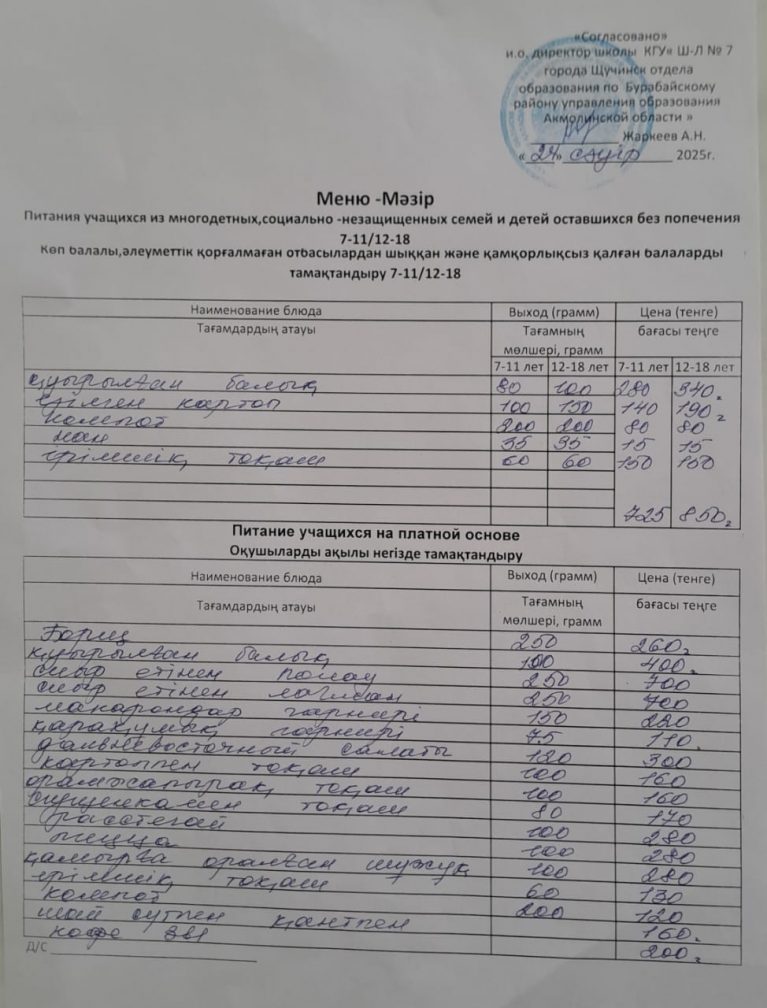 «Согласовано»
и.о. директор школы КГУ« Ш-Л № 7
города Щучинск отдела
образования по Бурабайскому
району управления образования
Акмолинской области »
Жаркеев А.Н.
« 24 » сәуір 2025г.
Меню -Мәзір
Питания учащихся из многодетных,социально -незащищенных семей и детей оставшихся без попечения
7-11/12-18
Көп балалы,әлеуметтік қорғалмаған отбасылардан шыққан және қамқорлықсыз қалған балаларды
тамақтандыру 7-11/12-18
Наименование блюда Выход (грамм) Цена (тенге)
Тағамдардың атауы Тағамның бағасы теңге
мөлшері, грамм
7-11 лет 12-18 лет 7-11 лет 12-18 лет
қуырылған балық 80 100 280 340
езілген картоп 100 150 140 190
компот 200 200 80 80
нан 35 35 15 15
ірімшік тоқаш 60 60 150 150
725 850
Питание учащихся на платной основе
Оқушыларды ақылы негізде тамақтандыру
Наименование блюда Выход (грамм) Цена (тенге)
Тағамдардың атауы Тағамның бағасы теңге
мөлшері, грамм
Борщ 250 260
қуырылған балық 100 400
сиыр етінен палау 250 700
сиыр етінен лағман 250 700
макарондар гарнирі 150 220
қарақұмық гарнирі 75 110
дальневосточный салаты 120 300
картоппен тоқаш 100 160
орамжапырақ тоқаш 100 160
сгущенкамен тоқаш 80 170
расстегай 100 280
пицца 100 280
қамырға оралған шұжық 100 280
ірімшік тоқаш 60 130
компот 200 120
шай сүтпен қантпен 160
кофе 3в1 200
Д/С